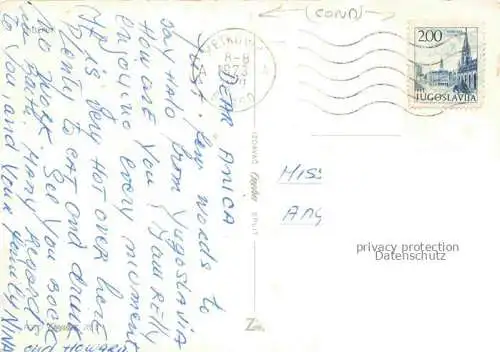 DEAR ANICA
Just few words to
say HALO from Yugoslavia
How are you I am relly
enjoying every moment
It is very hot over here
Plenty to eat and drink
No work. See you back
on Perth. Many Regards
to you and your family NINA
and Howard
(CONA)
2.00
JUGOSLAVIJA
MISS
ANG
privacy protection
Datenschutz
IZDAVAČ
SPLIT